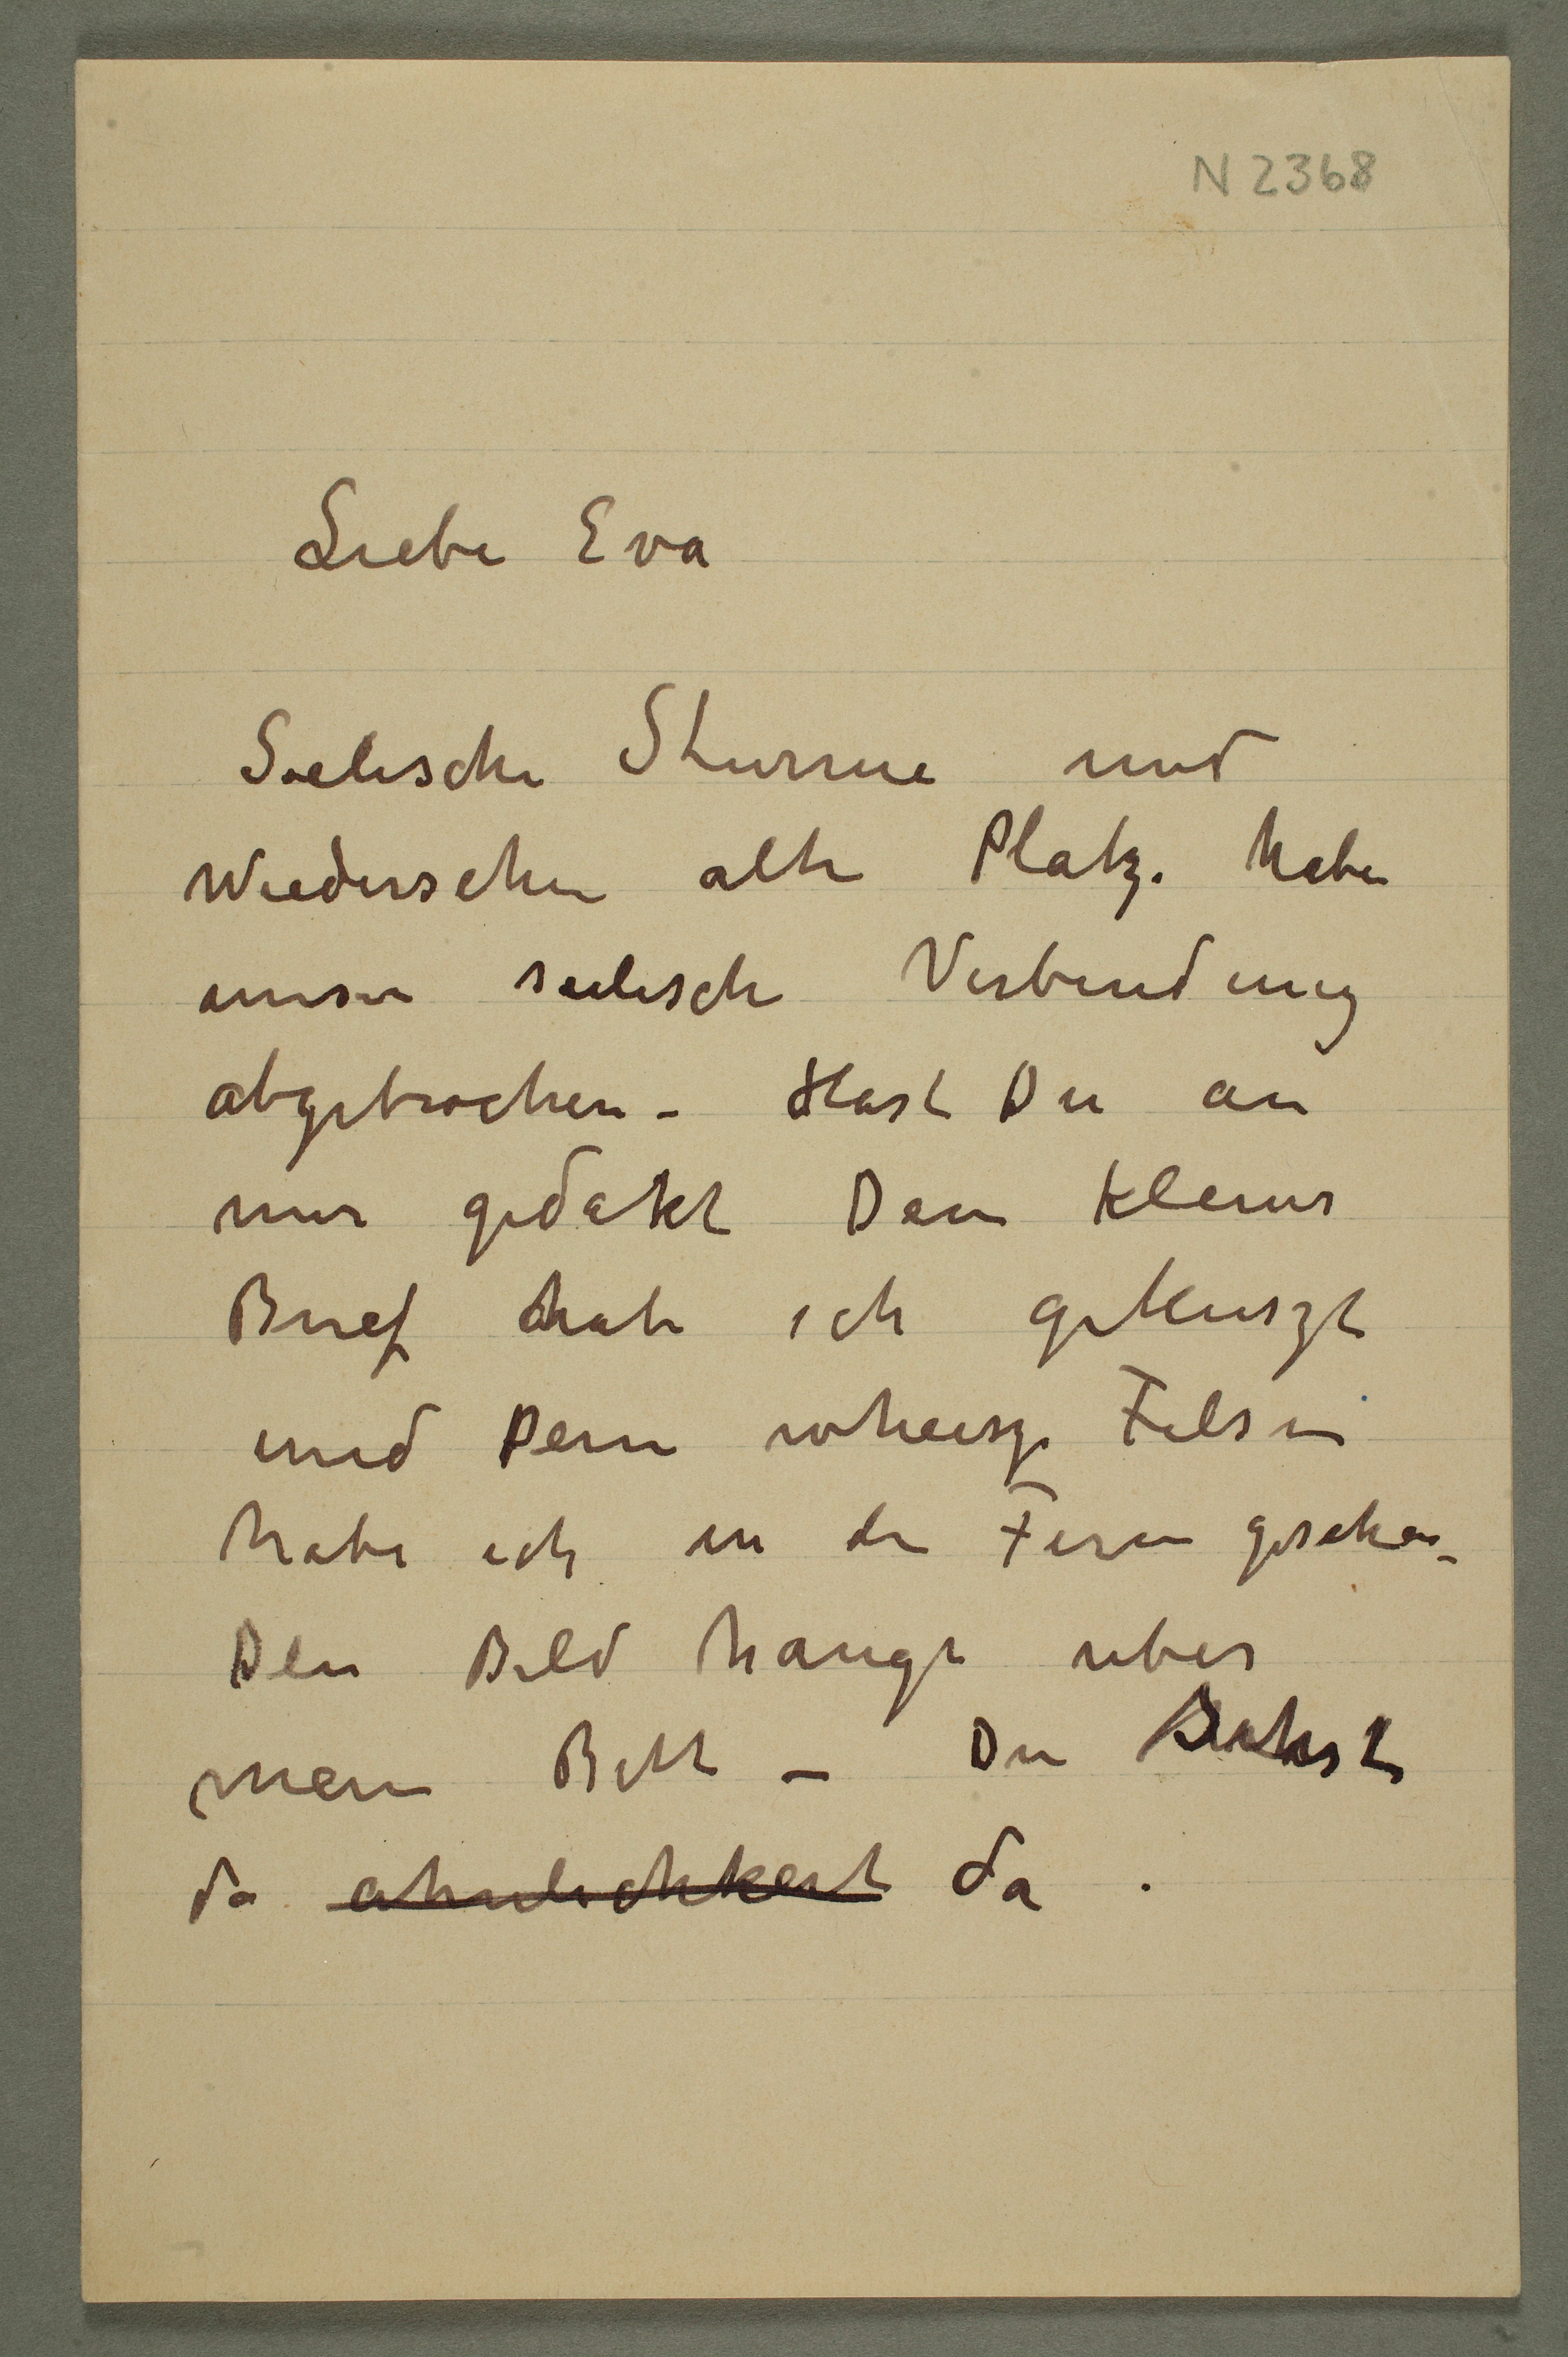 N 2368
Liebe Eva
Seelische Sturme und
Wiedersehen alte Platze haben
unser seelische Verbindung
abgebrochen – Hast Du an
mir gedakt Dein kleiner
Brief habe ich gekuszt
und Dein wheisze Felsen
habe ich in der Ferne gesehen –
Dein Bild hangt uber
mein Bett – Du
da ahnlichkeit da .